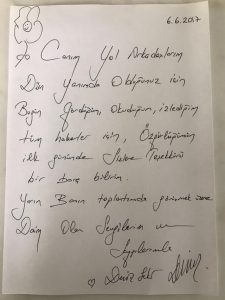 6.6.2017
Canım Yol Arkadaşlarım
Dün yanımda olduğunuz için
Bugün gördüğüm, okuduğum, izlediğim
tüm haberler için, Özgürlüğümün
ilk gününde Sizlere Teşekkürü
bir borç bilirim.
Yarın Basın toplantımda görüşmek üzere
Daim Olan Sevgilerim ve
Saygılarımla